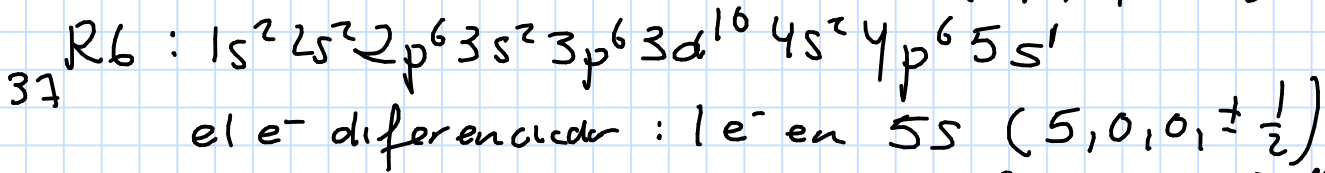 Rb : 1s² 2s² 2p⁶ 3s² 3p⁶ 3d¹⁰ 4s² 4p⁶ 5s¹
37
el e⁻ diferenciador : 1 e⁻ en 5s (5,0,0, ± 1/2)